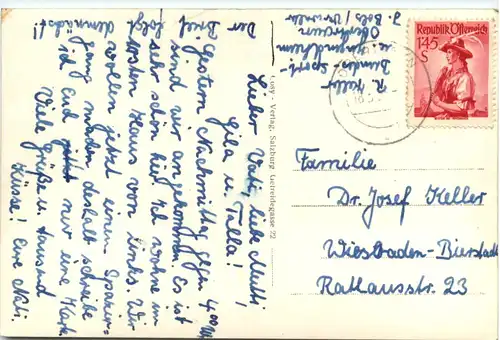 Lieber Vati, liebe Mutti,
Gila u. Tulla!
Gestern Nachmittag gegen 4⁰⁰ Uhr
sind wir angekommen. Es ist
sehr schön hier. Ich wohne im
ersten Haus von links. Wir
wollen jetzt einen Spazier-
gang machen, deshalb schreibe
ich euch jetzt nur eine Karte.
Viele Grüße u. tausend
Küsse! Eure
Der Brief
folgt
demnächst!
Cosy - Verlag, Salzburg, Getreidegasse 22
R. Keller
Bundes-Sport-
u. Jugendheim
Obertraun
Republik Österreich
1'45
S
Familie
Dr. Josef Keller
Wiesbaden-Bierstadt
Rathausstr. 23